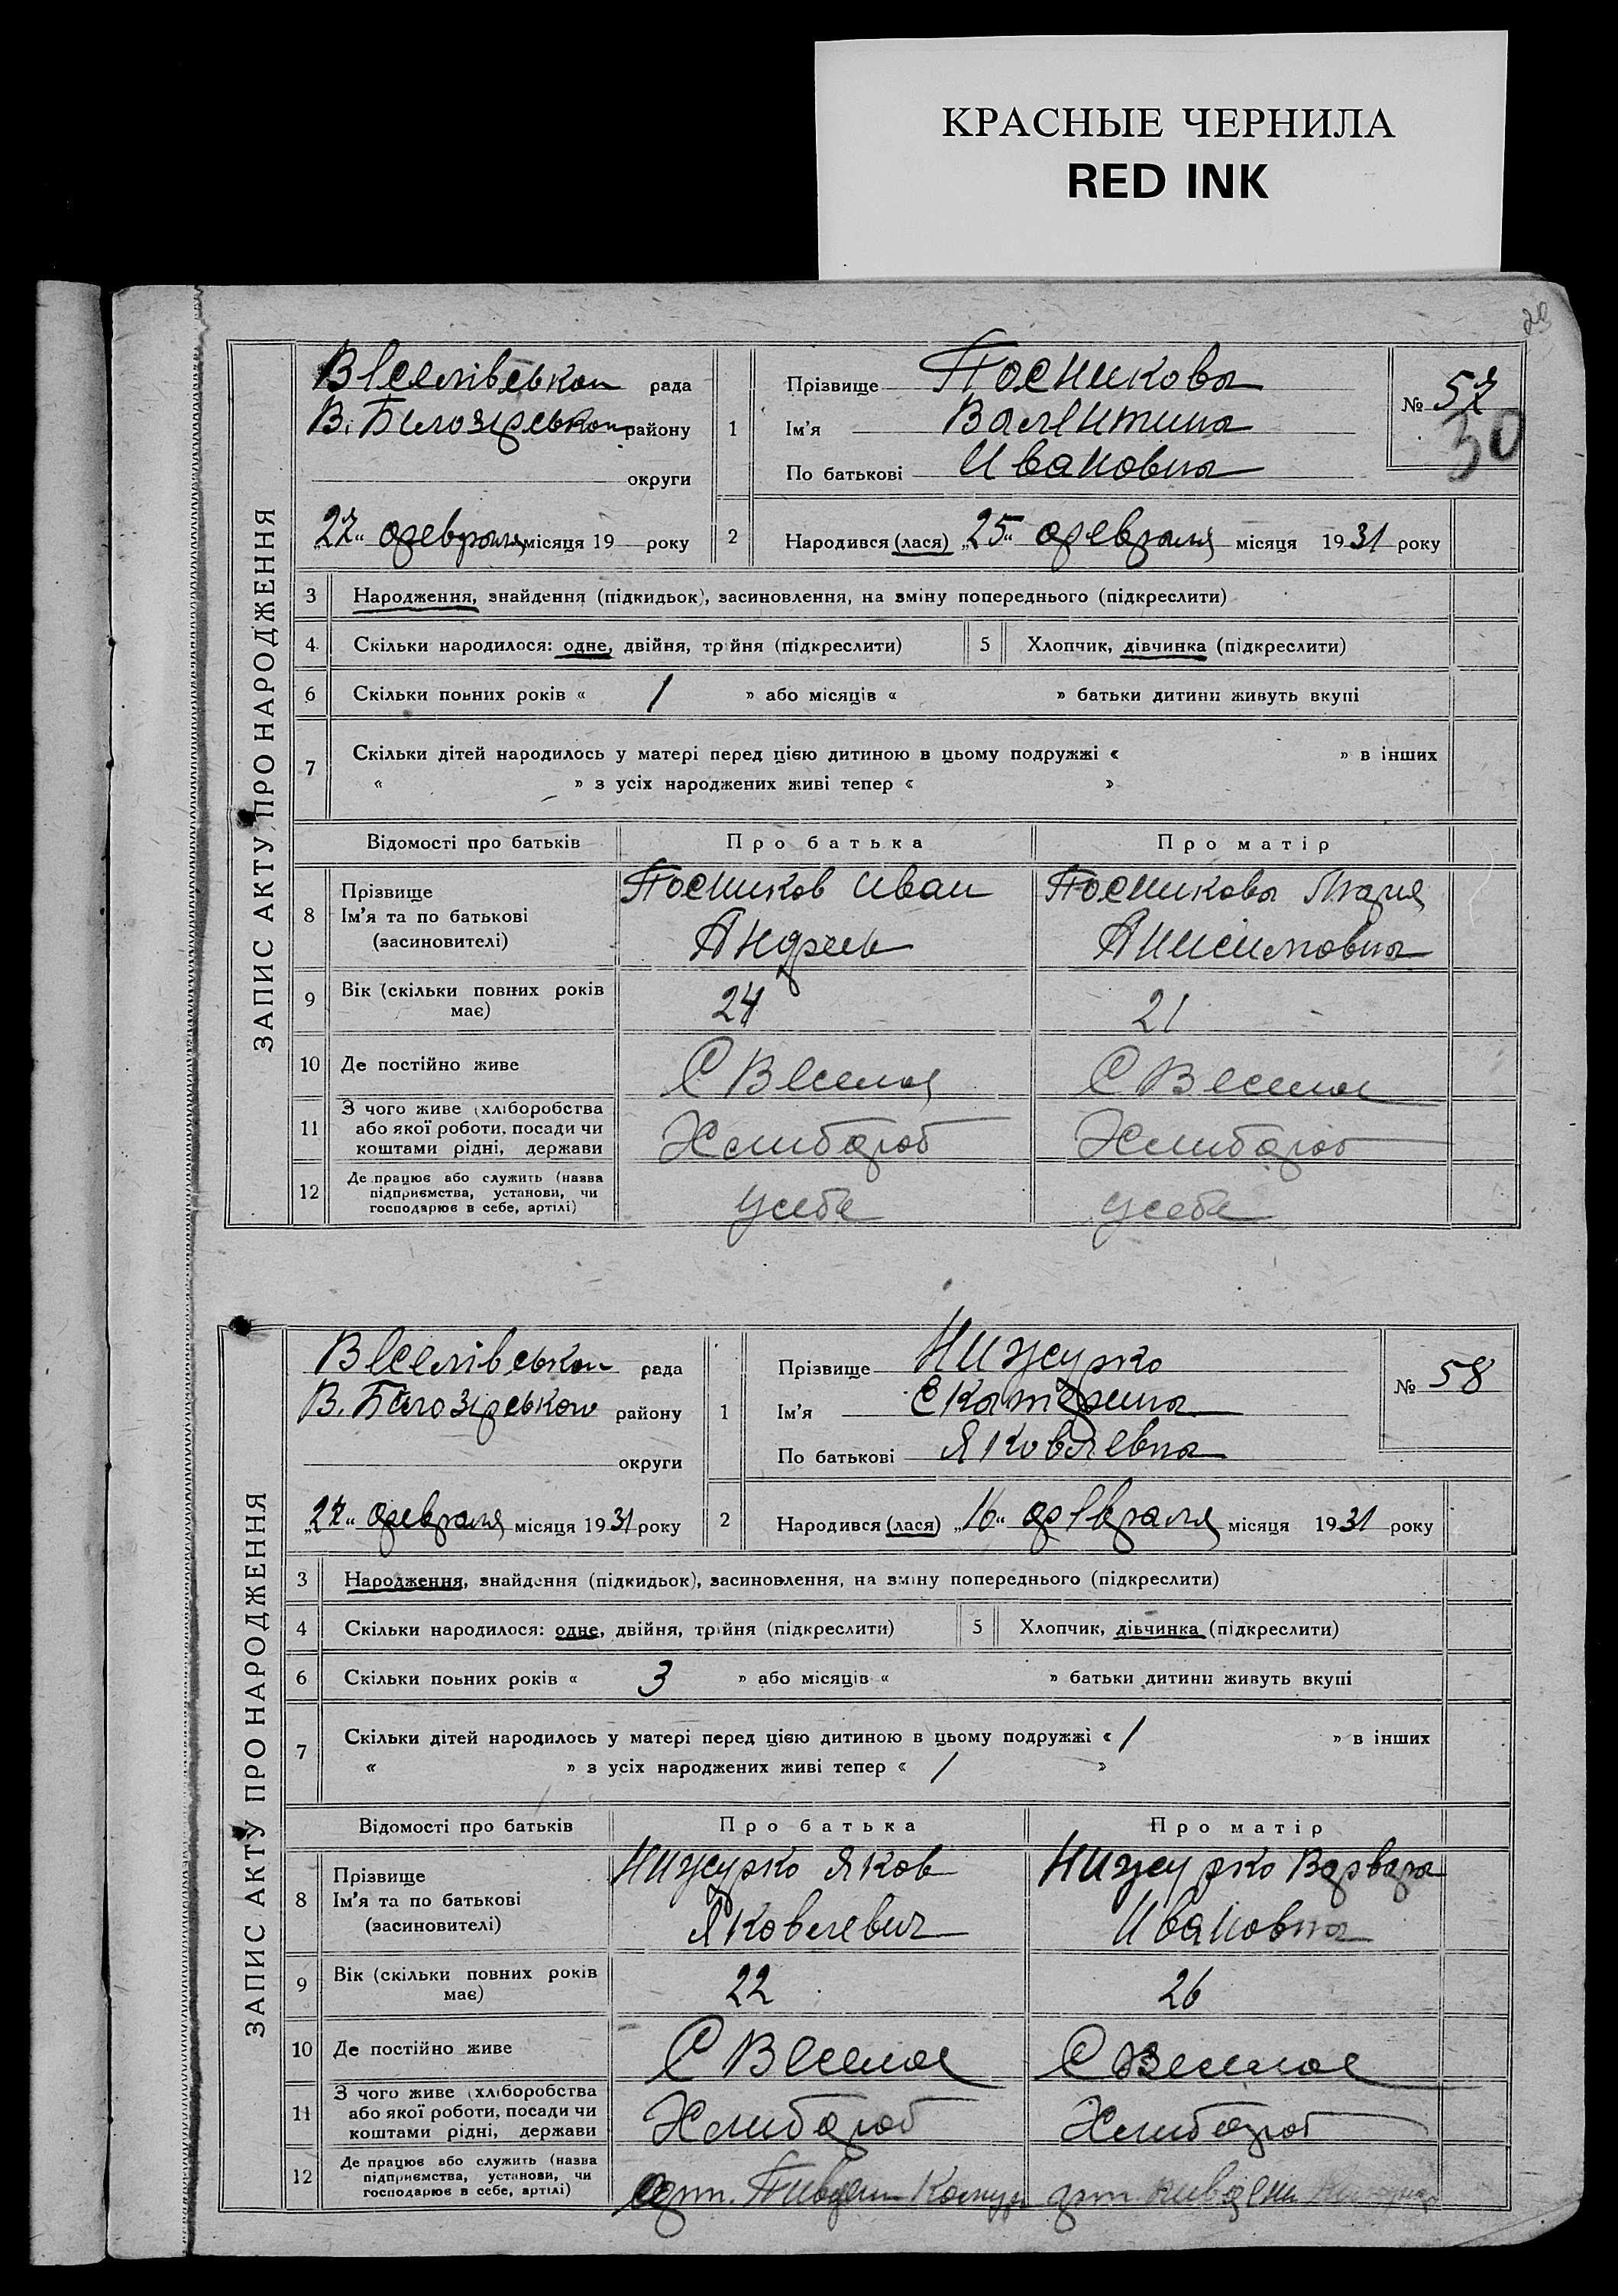 КРАСНЫЕ ЧЕРНИЛА
RED INK
29
ЗАПИС АКТУ ПРО НАРОДЖЕННЯ
Веселівської рада
В. Білозірського району
округи
"27" февраля місяця 19 року
1 Прізвище Посникова
Ім'я Валентина
По батькові Ивановна
№ 57
30
2 Народився (лася) "25" февраля місяця 1931 року
3 Народження, знайдення (підкидьок), засиновлення, на зміну попереднього (підкреслити)
4 Скільки народилося: одне, двійня, трійня (підкреслити) 5 Хлопчик, дівчинка (підкреслити)
6 Скільки повних років « 1 » або місяців « » батьки дитини живуть вкупі
7 Скільки дітей народилось у матері перед цією дитиною в цьому подружжі « » в інших
« » з усіх народжених живі тепер « »
Відомості про батьків Про батька Про матір
8 Прізвище Ім'я та по батькові (засиновителі)
Посников Иван Посникова Мария
Андрее Анисимовна
9 Вік (скільки повних років має) 24 21
10 Де постійно живе С Веселое С Веселое
11 З чого живе (хліборобства або якої роботи, посади чи коштами рідні, держави Хлибороб Хлибороб
12 Де працює або служить (назва підприємства, установи, чи господарює в себе, артілі) усебе усебе
ЗАПИС АКТУ ПРО НАРОДЖЕННЯ
Веселівської рада
В. Білозірського району
округи
"27" февраля місяця 1931 року
1 Прізвище Нижурко
Ім'я Екатерина
По батькові Яковлевна
№ 58
2 Народився (лася) "16" февраля місяця 1931 року
3 Народження, знайдення (підкидьок), засиновлення, на зміну попереднього (підкреслити)
4 Скільки народилося: одне, двійня, трійня (підкреслити) 5 Хлопчик, дівчинка (підкреслити)
6 Скільки повних років « 3 » або місяців « » батьки дитини живуть вкупі
7 Скільки дітей народилось у матері перед цією дитиною в цьому подружжі « 1 » в інших
« » з усіх народжених живі тепер « 1 »
Відомості про батьків Про батька Про матір
8 Прізвище Ім'я та по батькові (засиновителі)
Нижурко Яков Нижурко Варвара
Яковлевич Ивановна
9 Вік (скільки повних років має) 22 26
10 Де постійно живе С Веселое С Веселое
11 З чого живе (хліборобства або якої роботи, посади чи коштами рідні, держави Хлибороб Хлибороб
12 Де працює або служить (назва підприємства, установи, чи господарює в себе, артілі) арт. Пивден Комун арт. пивден